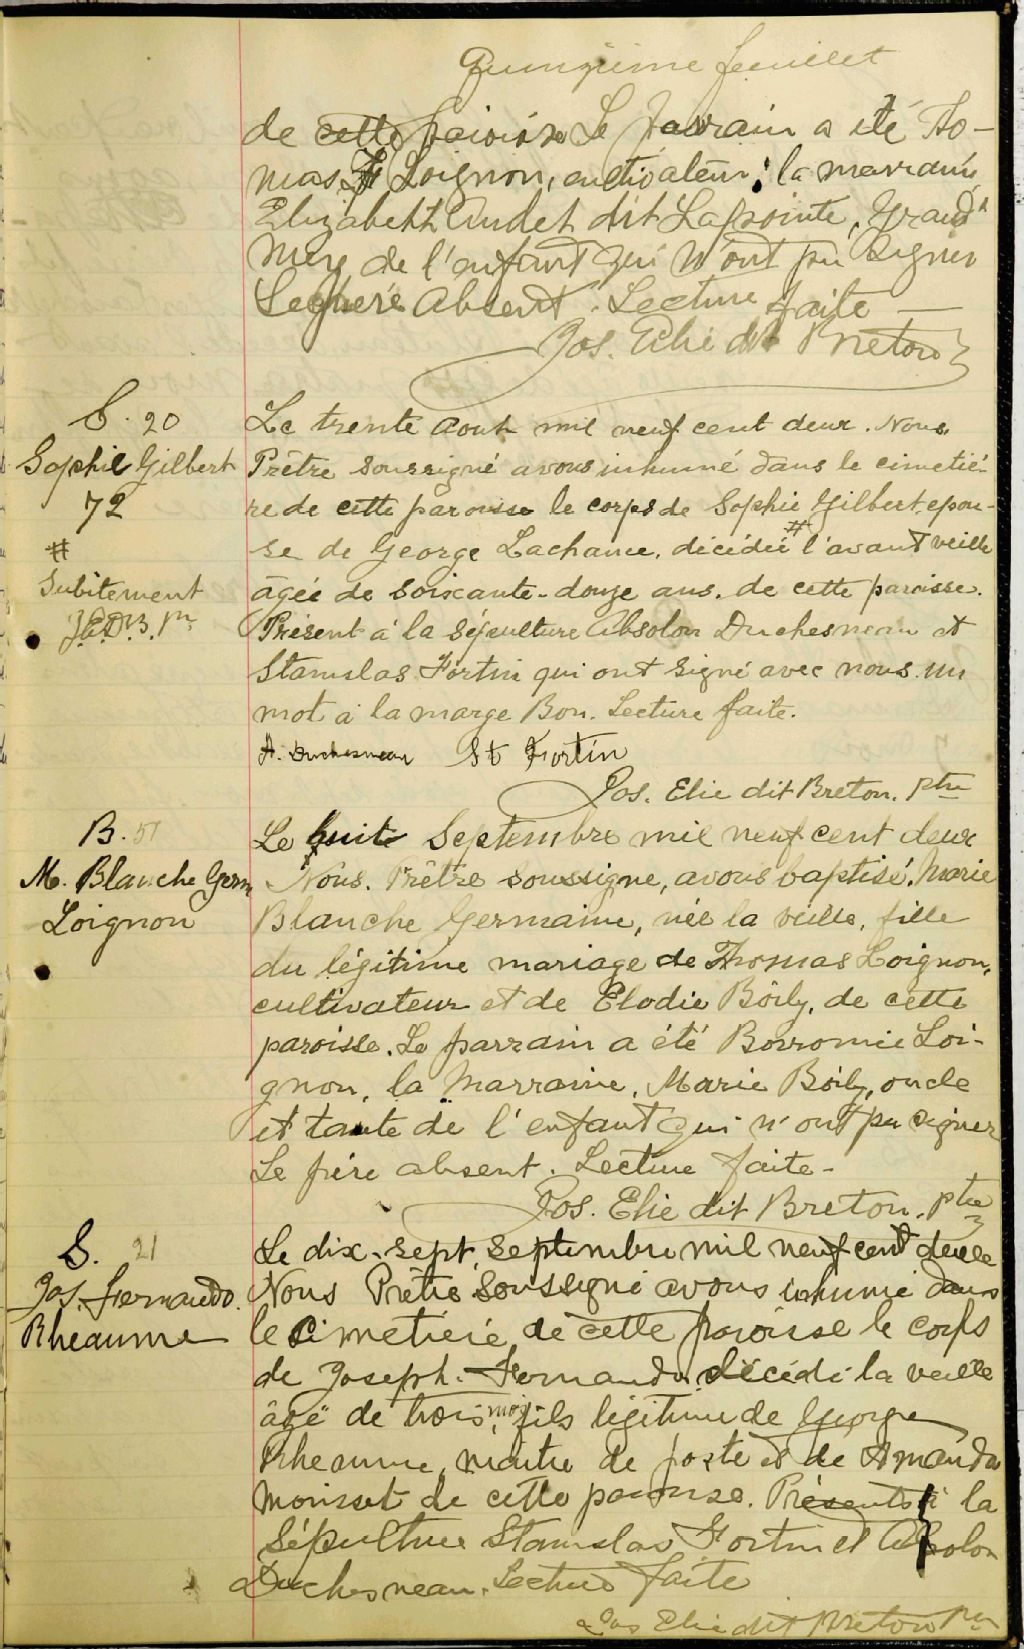 Quinzième feuillet
de cette paroisse Le parrain a été Tho-
mas Loignon, cultivateur; la marraine
Elizabeth Audet dit Lapointe, Grand'
Mere de l'enfant qui n'ont pu signer
Le père absent. Lecture faite —
Jos. Elie dit Breton
S. 20
Sophie Gilbert
72
#
Subitement
J.E.D.B. Ptr
Le trente Aout mil neuf cent deux. Nous,
Prêtre soussigné avons inhumé dans le cimetiè-
re de cette paroisse le corps de Sophie Gilbert, epou-
se de George Lachance, décédée # l'avant veille
âgée de soixante-douze ans, de cette paroisse.
Présent à la sépulture Absolon Duchesneau et
Stanislas Fortin qui ont signé avec nous. un
mot à la marge Bon. Lecture faite.
A. Duchesneau St Fortin
Jos. Elie dit Breton. ptre
B. 51
M. Blanche Germ
Loignon
Le huit Septembre mil neuf cent deux
Nous. Prêtre soussigné, avons baptisé. Marie
Blanche Germaine, née la veille, fille
du légitime mariage de Thomas Loignon,
cultivateur et de Elodie Boily, de cette
paroisse. Le parrain a été Borromée Loi-
gnon, la Marraine, Marie Boily, oncle
et tante de l'enfant qui n'ont pu signer
Le père absent. Lecture faite -
Jos. Elie dit Breton. ptre
S. 21
Jos. Fernando.
Rheaume
Le dix-sept, septembre mil neuf cent deux
Nous Prêtre soussigné avons inhumé dans
le cimetière de cette paroisse le corps
de Joseph. Fernando, décédé la veille
âgé de trois mois, fils légitime de George
Rheaume, maitre de poste et de Amanda
Morisset de cette paroisse. Présents à la
Sépulture Stanislas Fortin et Absolon
Duchesneau. Lecture faite
Jos Elie dit Breton Ptr